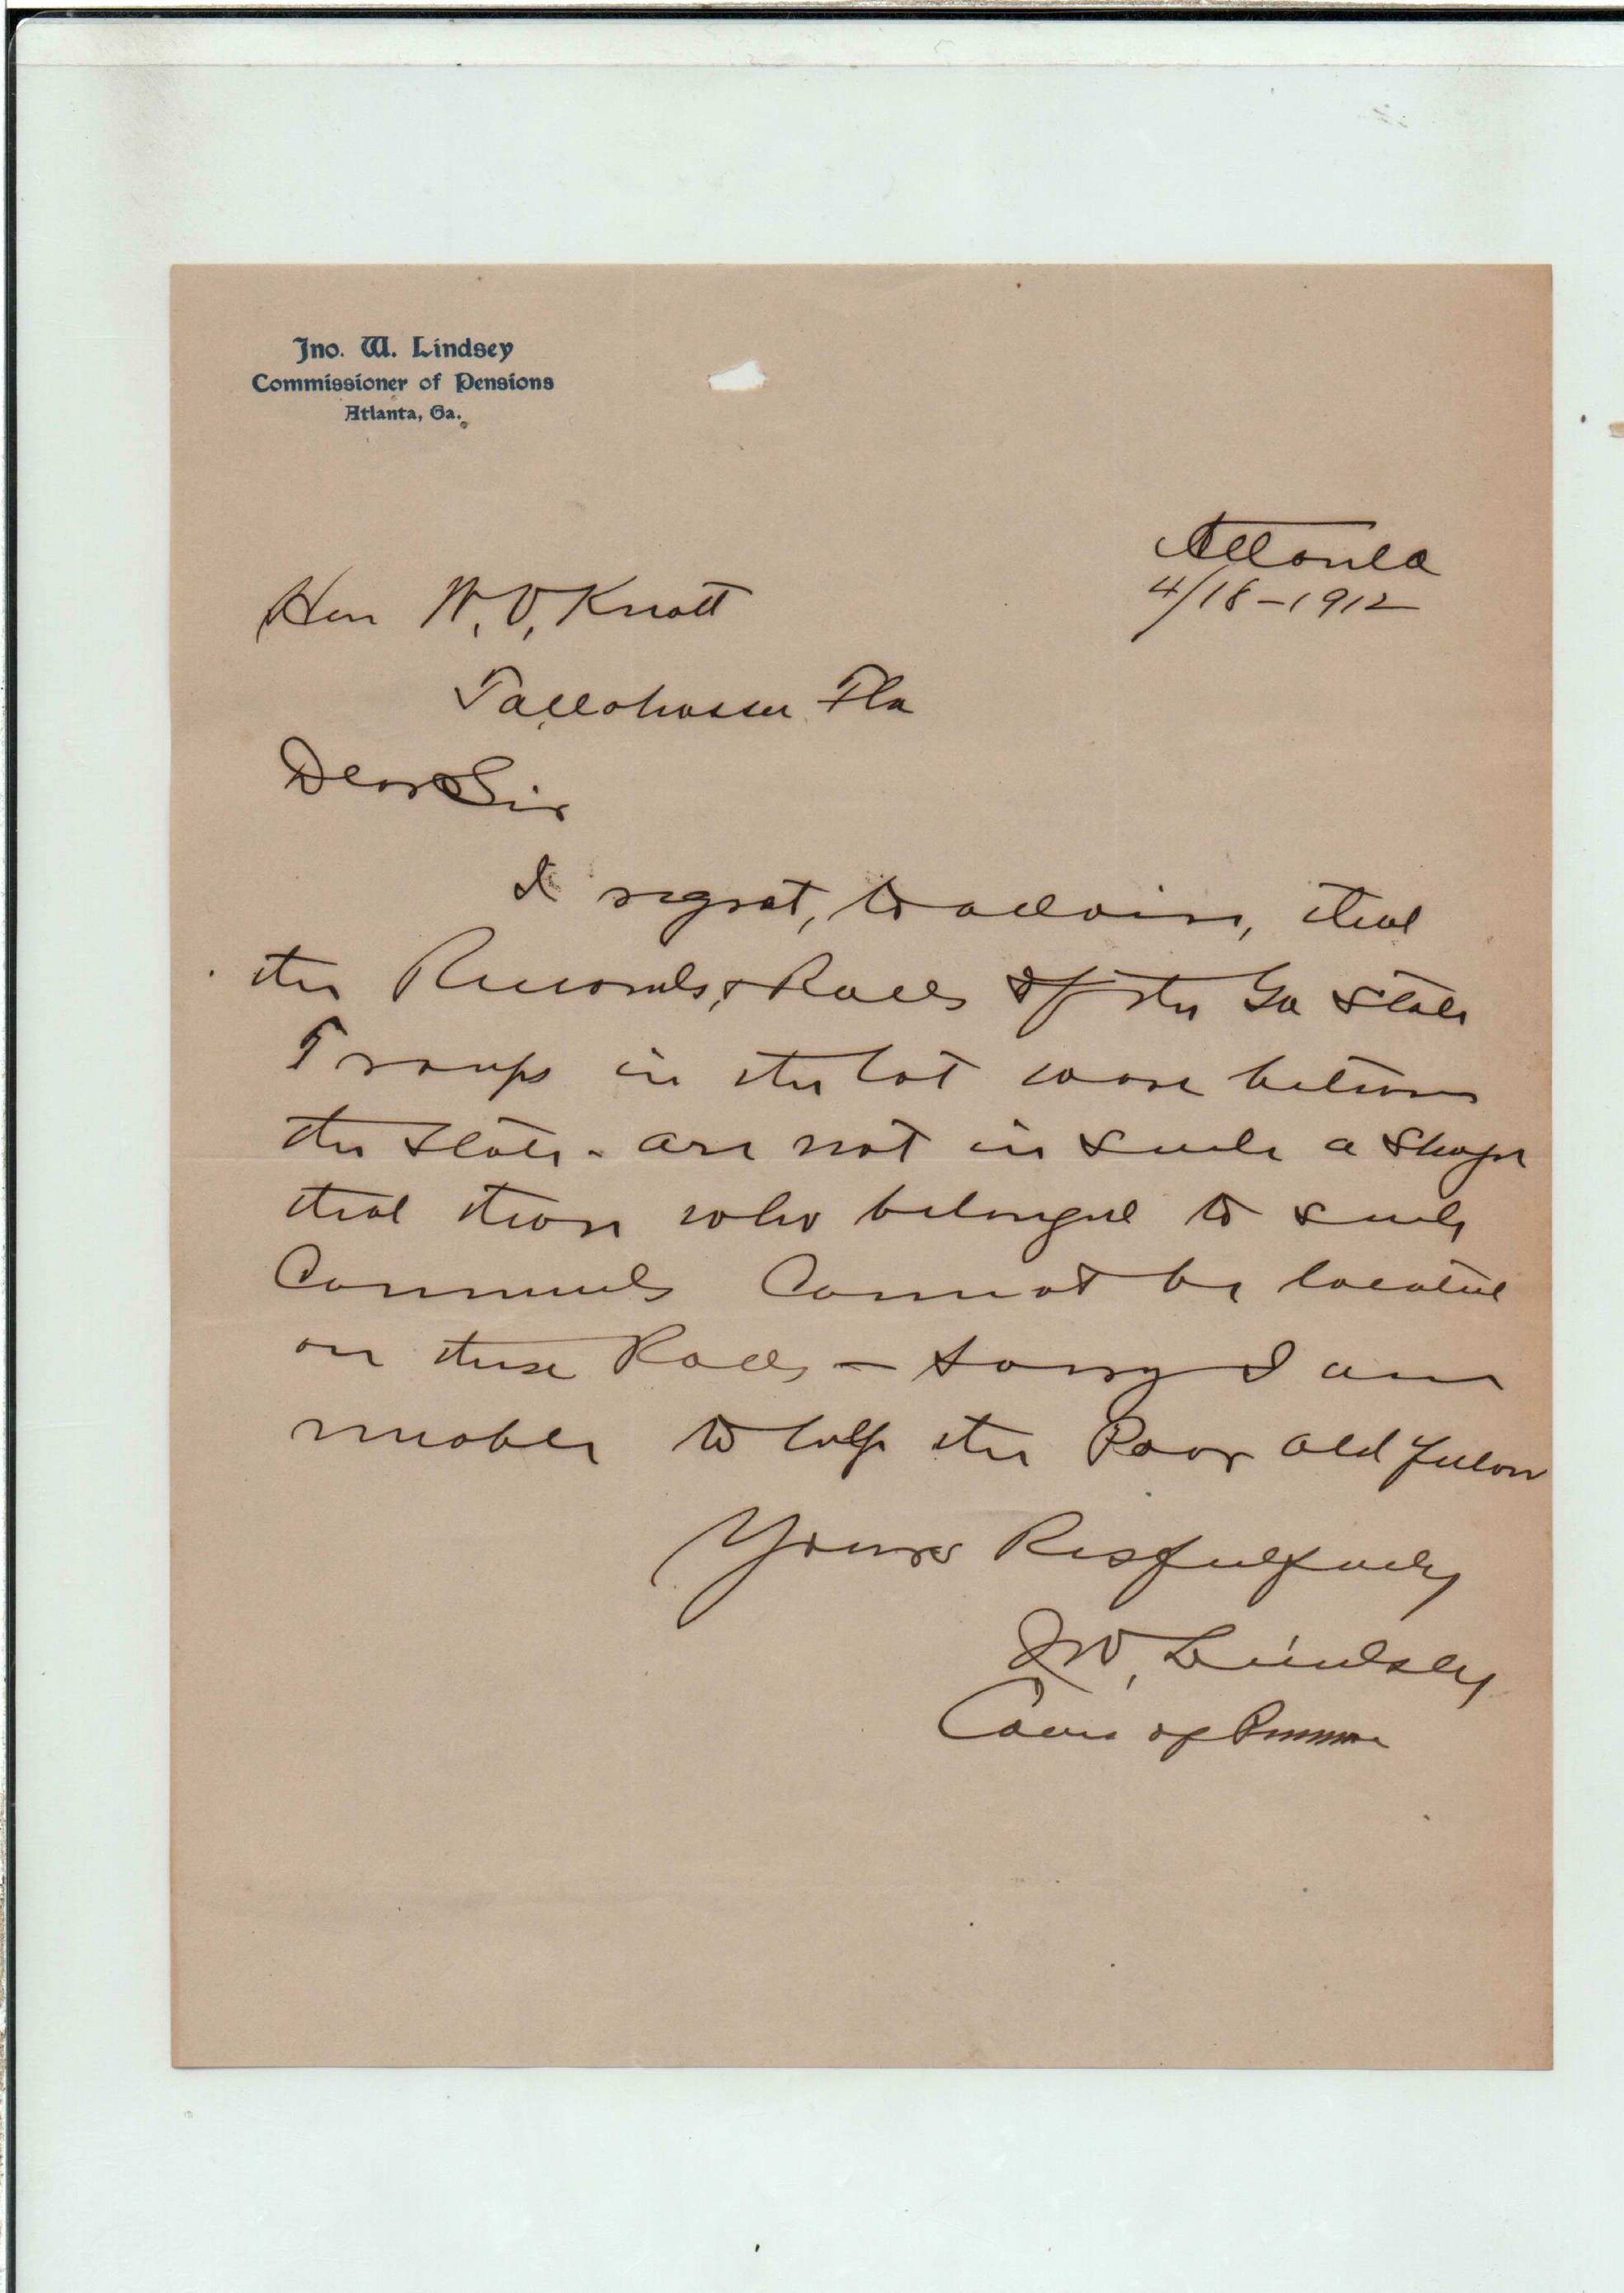 Jno. W. Lindsey
Commissioner of Pensions
Atlanta, Ga.
Atlanta
4/18-1912
Hon W. V. Knott
Tallahassee Fla
Dear Sir
I regret, to advise, that
the Records & Rolls of the Ga State
Troops in the lat war between
the States - are not in such a shape
that those who belonged to such
Commands Cannot be located
on these Rolls - Sorry I am
unable to help the Poor old fellow
Yours Respectfully
JW, Lindsey
Com of Pensions